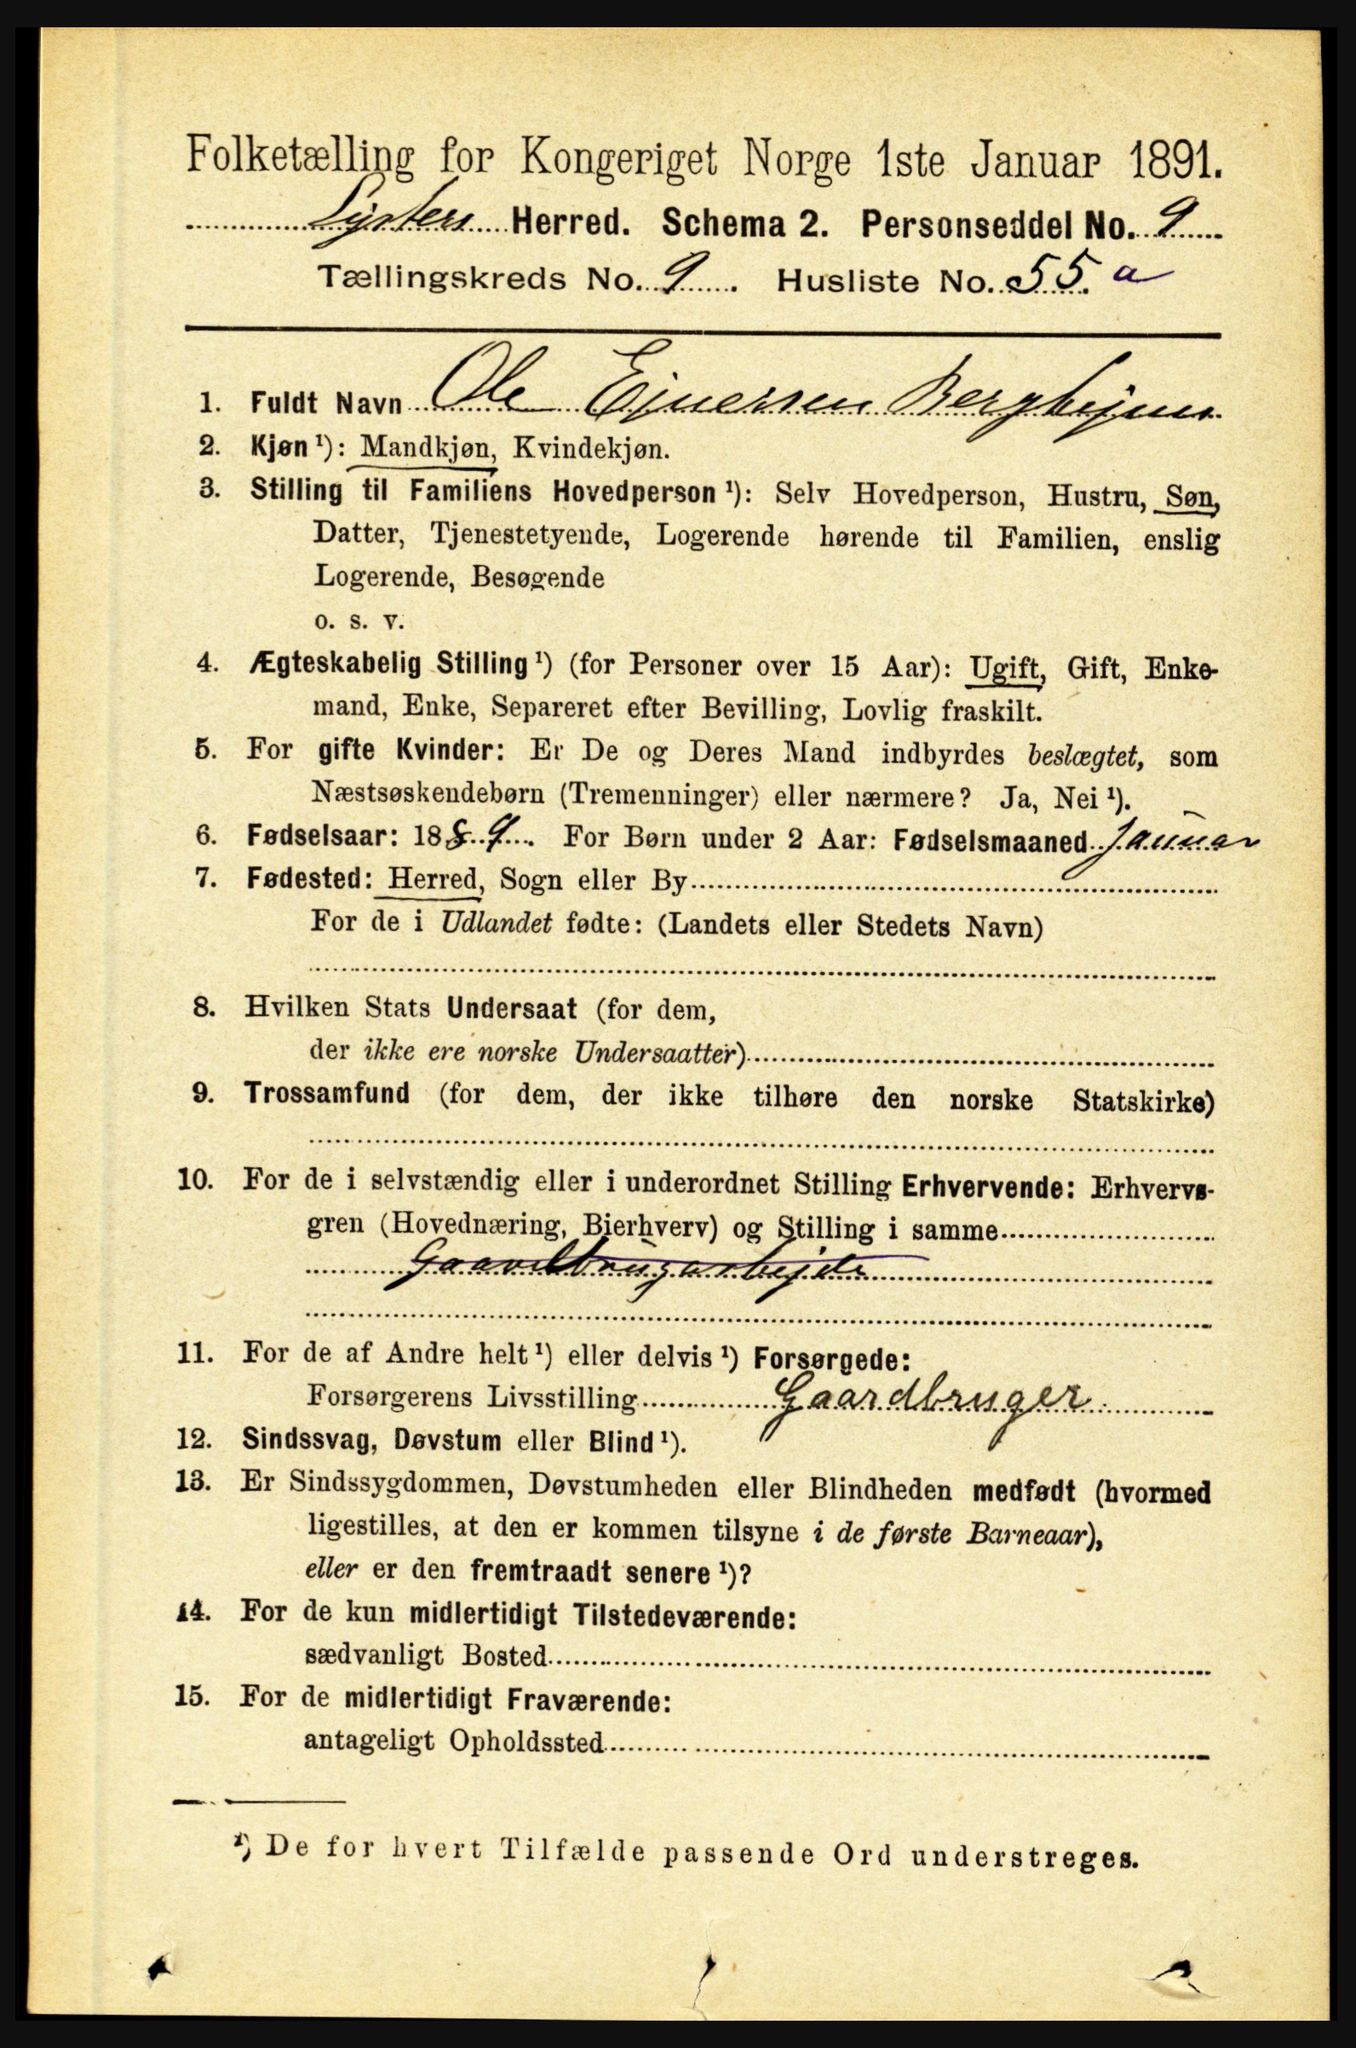 Folketælling for Kongeriget Norge 1ste Januar 1891.
Lysters Herred. Schema 2. Personseddel No. 9
Tællingskreds No. 9. Husliste No. 55. a
1. Fuldt Navn Ole Ejnersen Berghejm
2. Kjøn ¹): Mandkjøn, Kvindekjøn.
3. Stilling til Familiens Hovedperson ¹): Selv Hovedperson, Hustru, Søn,
Datter, Tjenestetyende, Logerende hørende til Familien, enslig
Logerende, Besøgende
o. s. v.
4. Ægteskabelig Stilling ¹) (for Personer over 15 Aar): Ugift, Gift, Enke-
mand, Enke, Separeret efter Bevilling, Lovlig fraskilt.
5. For gifte Kvinder: Er De og Deres Mand indbyrdes beslægtet, som
Næstsøskendebørn (Tremenninger) eller nærmere? Ja, Nei ¹).
6. Fødselsaar: 1889. For Børn under 2 Aar: Fødselsmaaned Januar
7. Fødested: Herred, Sogn eller By
For de i Udlandet fødte: (Landets eller Stedets Navn)
8. Hvilken Stats Undersaat (for dem,
der ikke ere norske Undersaatter)
9. Trossamfund (for dem, der ikke tilhøre den norske Statskirke)
10. For de i selvstændig eller i underordnet Stilling Erhvervende: Erhvervs-
gren (Hovednæring, Bierhverv) og Stilling i samme
Gaardbrugarbejde
11. For de af Andre helt ¹) eller delvis ¹) Forsørgede:
Forsørgerens Livsstilling Gaardbruger
12. Sindssvag, Døvstum eller Blind ¹).
13. Er Sindssygdommen, Døvstumheden eller Blindheden medfødt (hvormed
ligestilles, at den er kommen tilsyne i de første Barneaar),
eller er den fremtraadt senere ¹)?
14. For de kun midlertidigt Tilstedeværende:
sædvanligt Bosted
15. For de midlertidigt Fraværende:
antageligt Opholdssted
¹) De for hvert Tilfælde passende Ord understreges.